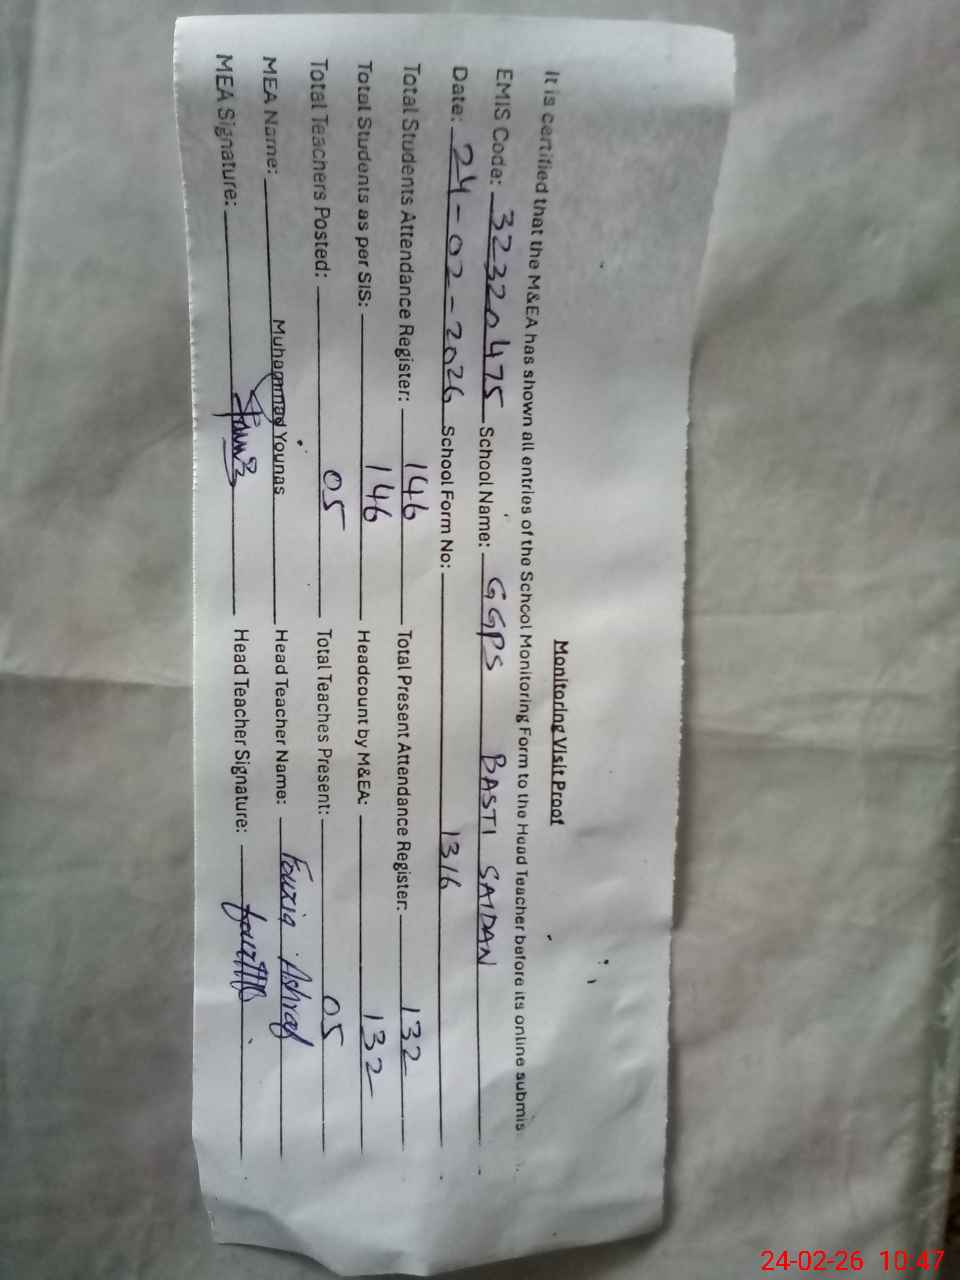 Monitoring Visit Proof
It is certified that the M&EA has shown all entries of the School Monitoring Form to the Head Teacher before its online submis
EMIS Code: 32320475 School Name: GGPS BASTI SAIDAN
Date: 24-02-2026 School Form No: 1316
Total Students Attendance Register: 146 Total Present Attendance Register: 132
Total Students as per SIS: 146 Headcount by M&EA: 132
Total Teachers Posted: 05 Total Teaches Present: 05
MEA Name: Muhammad Younas Head Teacher Name: Fouzia Ashraf
MEA Signature: Head Teacher Signature:
24-02-26 10:47